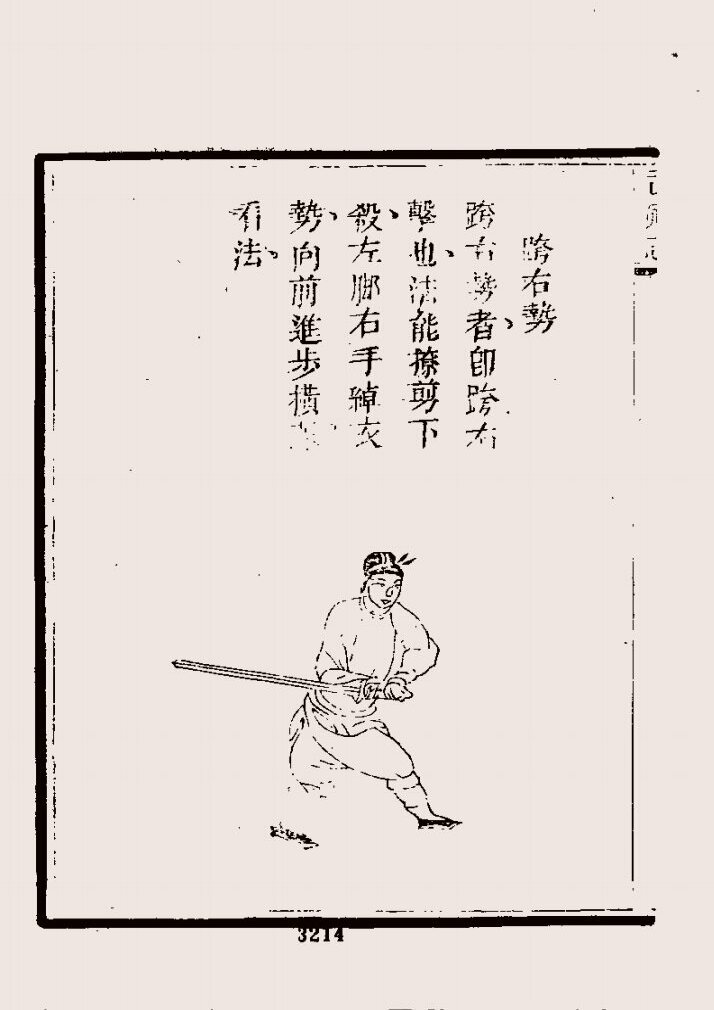 跨右勢
跨右勢者、即跨右
擊也、法能撩剪下
殺、左脚右手綽衣
勢、向前進步橫
看法、
3214